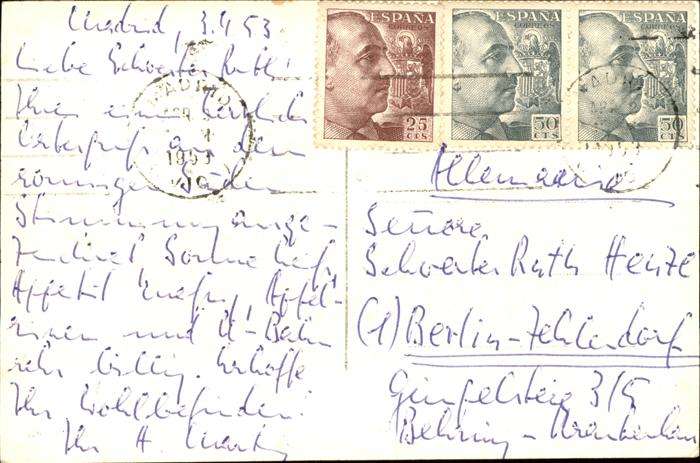 Madrid, 3.4.53.
Liebe Schwester Ruth!
Ihnen einen herzlichen
Ostergruß aus dem
sonnigen Süden
Stimmung ausge-
zeichnet Sonne
Appetit Apfel-
sinen und U-Bahn
sehr billig. Erhoffe
Ihr Wohlbefinden!
Ihr H.
ESPAÑA
CORREOS
25
CTS
ESPAÑA
CORREOS
50
CTS
ESPAÑA
CORREOS
50
CTS
MADRID
1953
Allemania
Señora
Schwester Ruth Henze
(1) Berlin-Zehlendorf
3/5
Behring-Krankenhaus